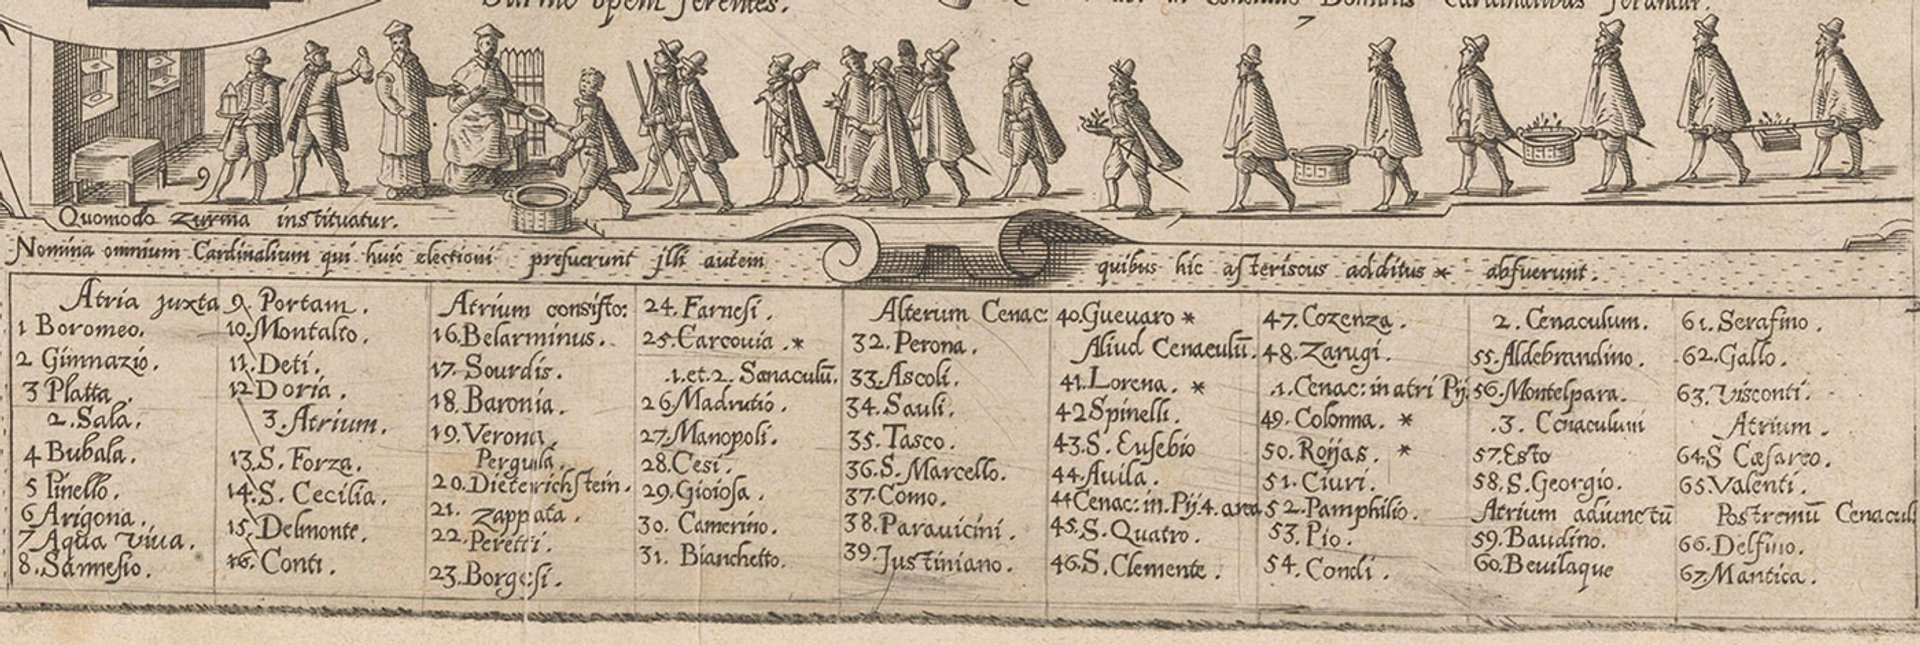 opem ferentes.
Dominis Cardinalibus
7
9
Quomodo Zurma instituatur.
Nomina omnium Cardinalium qui huic electioni prefuerunt illi autem quibus hic asteriscus additus * abfuerunt.
Atria juxta
1 Boromeo.
2 Gimnazio.
3 Platta.
2. Sala.
4 Bubala.
5 Pinello.
6 Arigona.
7 Aqua viva.
8. Sannesio.
9. Portam.
10. Montalto.
11. Deti.
12 Doria.
3. Atrium.
13. S. Forza.
14. S. Cecilia.
15. Delmonte.
16. Conti.
Atrium consisto:
16. Belarminus.
17. Sourdis.
18. Baronia.
19. Verona
Pergula.
20. Dieterichstein.
21. Zappata.
22. Peretti.
23. Borgesi.
24. Farnesi.
25. Carcovia. *
.1. et. 2. Sanaculū.
26. Madrutio.
27. Manopoli.
28. Cesi.
29. Gioiosa.
30. Camerino.
31. Bianchetto.
Alterum Cenac:
32. Perona.
33. Ascoli.
34. Sauli.
35. Tasco.
36. S. Marcello.
37. Como.
38. Paravicini.
39. Justiniano.
40. Guevaro *
Aliud Cenaculū.
41. Lorena. *
42 Spinelli.
43. S. Eusebio
44. Avila.
44 Cenac: in. Pij. 4. area
45. S. Quatro.
46. S. Clemente.
47. Cozenza.
48. Zarugi.
.1. Cenac: in atri Pij.
49. Colonna. *
50. Roijas. *
51. Ciuri.
52. Pamphilio.
53. Pio.
54. Condi.
2. Cenaculum.
55. Aldebrandino.
56. Montelpara.
.3. Cenaculum
57. Esto
58. S. Georgio.
Atrium adiunctū
59. Baudino.
60. Bevilaque
61. Serafino.
62. Gallo.
63. Visconti.
Atrium.
64. S Cæsareo.
65. Valenti.
Postremū Cenacul
66. Delfino.
67. Mantica.